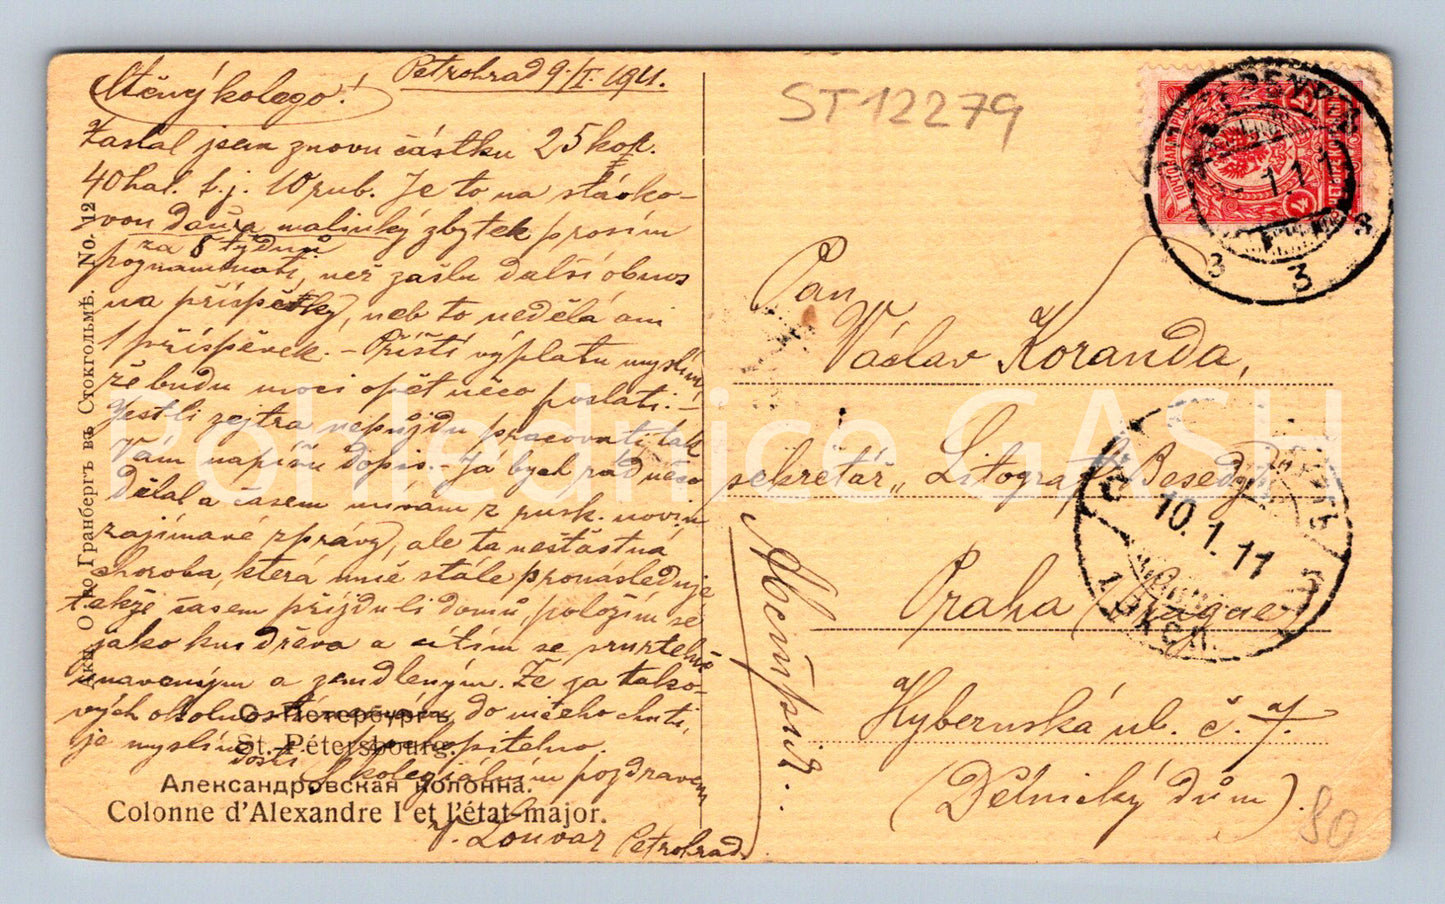 Petrohrad 9./I. 1911.
Ctěný kolego!
Zaslal jsem znovu částku 25 kop.
40 hal. t. j. 10 rub. Je to na stávko-
vou daň a malinký zbytek prosím
za 8 týdnů
poznamenati, než zašlu další obnos
na příspěvky, neb to nedělá ani
1 příspěvek. – Příští výplatu myslím
že budu moci opět něco poslati. –
Jestli zejtra nepůjdu pracovati tak
Vám napíšu dopis. – Ja bych rád něco
dělal a časem mívám z rusk. novin
zajímavé zprávy, ale ta nešťastná
choroba, která mně stále pronásleduje
takže časem přijdu li domů, položím se
jako kus dřeva a cítím se smrtelně
unaveným a zemdleným. Že za tako-
vých okolností do ničeho chuti,
je myslím pochopitelno.
dosti S kolegiálním pozdravem
V. Louvar Petrohrad
Акц. О во Гранбергъ въ Стокгольмѣ. No. 12
С.-Петербургъ.
St.-Pétersbourg.
Александровская колонна.
Colonne d'Alexandre I et l'état-major.
ST12279
Pan
Václav Koranda,
sekretář „Litograf. Besedy"
Praha (Prague)
Hybernská ul. č. 7.
(Dělnický dům).
10.1.11
3 3
80
Pohlednice GASH